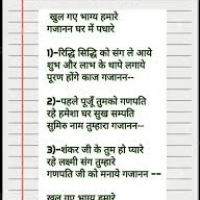 खुल गए भाग्य हमारे
गजानन घर में पधारे
1)-रिद्धि सिद्धि को संग ले आये
शुभ और लाभ के थापे लगाये
पूरण होंगे काज गजानन--
2)-पहले पूजूँ तुमको गणपति
रहे हमेशा घर सुख सम्पति
सुमिरु नाम तुम्हारा गजानन--
3)-शंकर जी के तुम हो प्यारे
रहे लक्ष्मी संग तुम्हारे
गणपति जी को मनाये गजानन --
खुल गए भाग्य हमारे